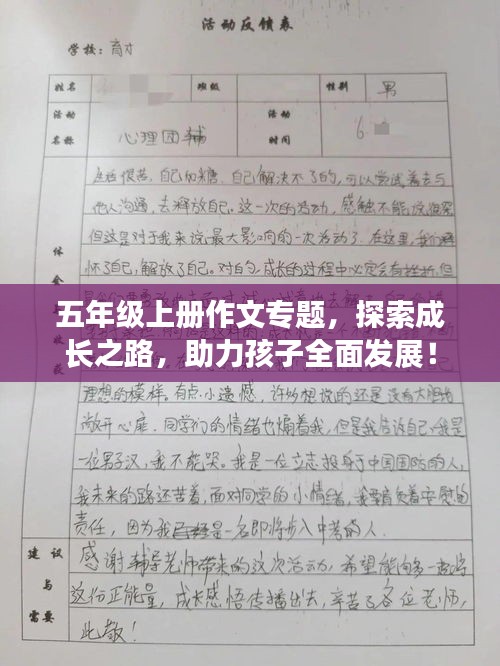 活动反馈表
学校：育才
姓名 班级 性别 男
活动名称 心理团辅 活动时间 6
生活很苦，自己加糖，自己解决不了的，可以尝试着去与
他人沟通，去释放自己。这一次的活动，感触不能说很深
但这是对于我来说最大影响的一次活动了。在这里，我们释
怀了自己，解放了自己。对的，成长的过程中必定会有挫折，但
五年级上册作文专题，探索成
长之路，助力孩子全面发展！
理想的模样。有点小遗感，许多想说的还是没有大胆地
敞开心扉，同学们的情绪也煽着我，但是我告诉自己，我是
一位男子汉，我不能哭。我是一位立志投身于中国国防的人，
我未来的路还苦着，面对同学的小情绪，我要肩负着安慰的
责任，因为我已经是一名即将步入中考的人。
体会
建议与需要
感谢辅导老师带来的这次活动，希望能够多一起将
这份正能量，成长感悟传播出去，辛苦了各位老师，
此敬！